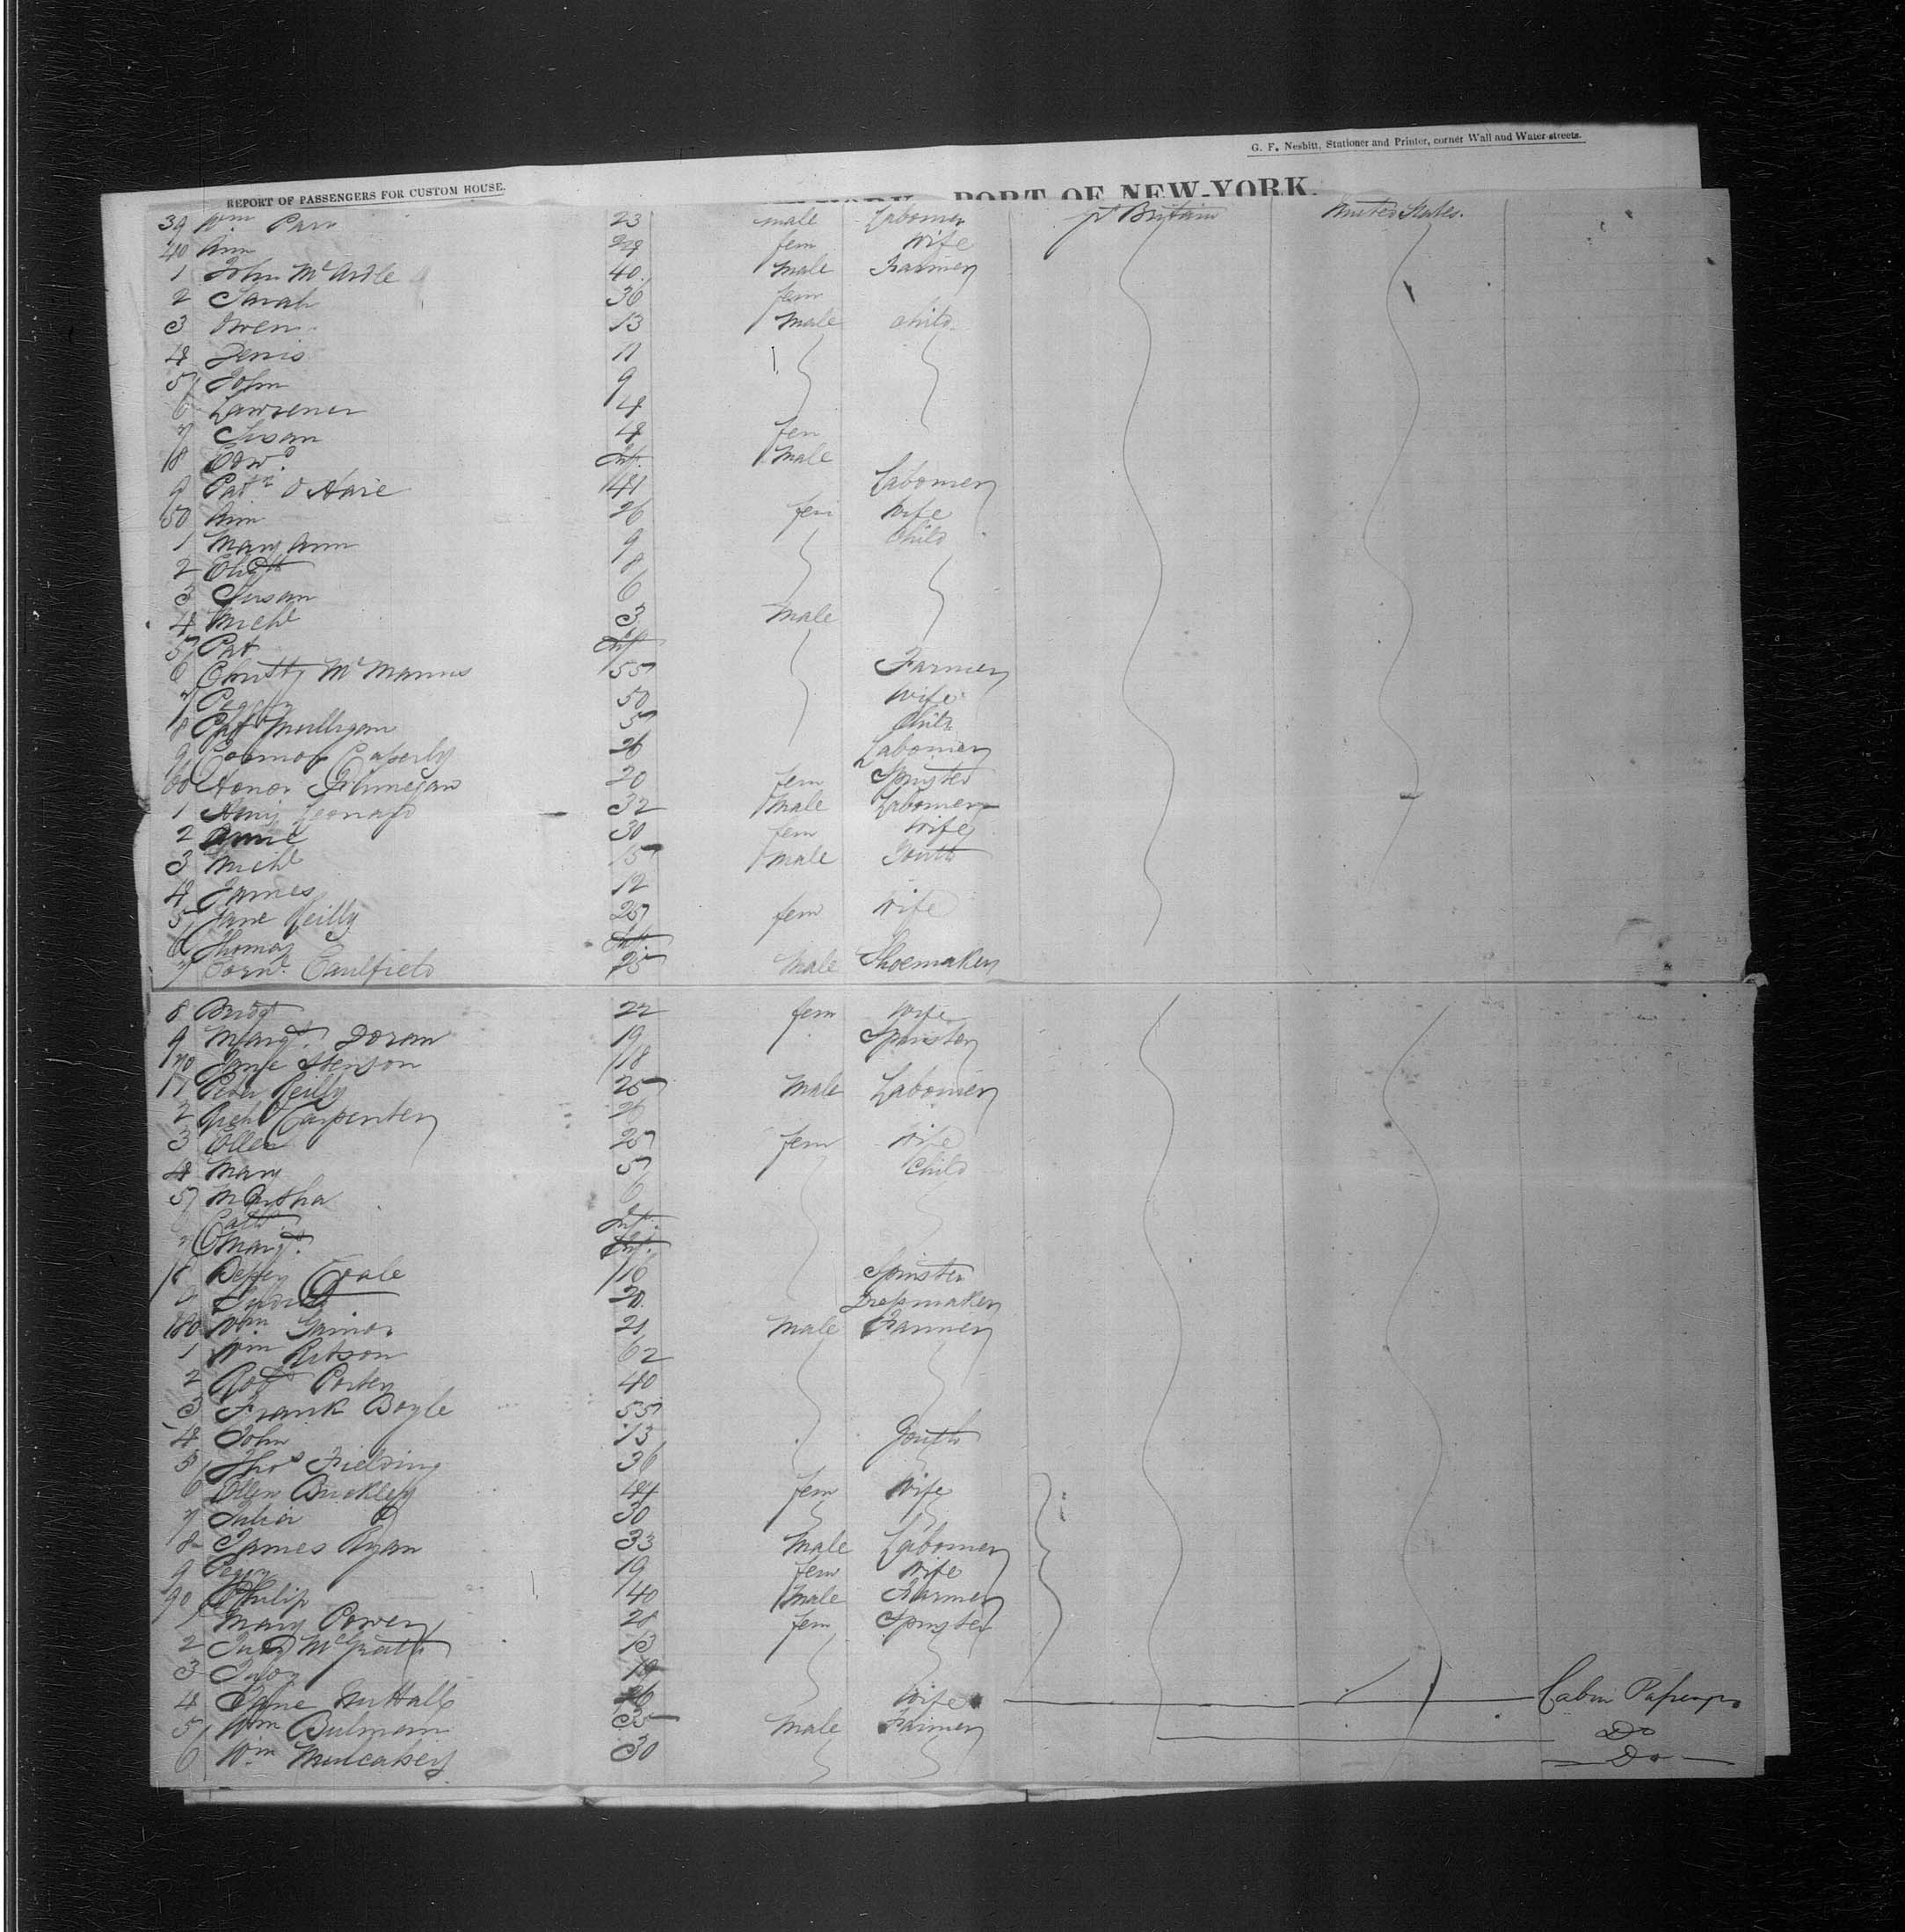 G. F. Nesbitt, Stationer and Printer, corner Wall and Water-streets.
REPORT OF PASSENGERS FOR CUSTOM HOUSE.
PORT OF NEW-YORK.
39 Wm Parr 23 male Labourer Gt Britain United States.
40 Ann fem wife
1 John McArdle 40 male Farmer
2 Sarah 36 fem
3 Owen 13 male child
4 Denis 11
5 John 9
6 Lawrence 4
7 Susan 4 fem
8 Edwd Inft. male
9 Patk O Hare 41 Labourer
50 Ann 26 fem wife
1 Mary Ann 9 child
2 Elizth 8
3 Susan 6
4 Michl 3 male
5 Pat Inft
6 Christy McManus 55 Farmer
7 Peggy 50 wife
8 Mulligan 5 child
9 Connor 26 Labourer
60 Honor Finnegan 20 fem Spinster
1 Leonard 32 male Labourer
2 Anne 30 fem wife
3 Michl 15 male Youth
4 James 12
5 Jane Reilly 25 fem wife
6 Thomas Inft.
7 Cornl. Caulfield 25 male Shoemaker
8 Bridgt 22 fem wife
9 Margt. Doran 19 Spinster
170 Jane Stenson 18
1 Peter Reilly 25 male Labourer
2 Richd Carpenter 26
3 Ellen 25 fem wife
4 Mary 5 child
5 Martha 6
Cath Inft.
7 Margt. Inft.
8 Betsey Coale 18 Spinster
9 20 Dressmaker
180 Wm Gainor 21 male Farmer
1 Wm Ritson 62
2 Robt Porter 40
3 Frank Boyle 55
4 John 13 Youth
5 Thos Fielding 36
6 Ellen Buckley 44 fem wife
7 Julia 30
8 James Ryan 33 male Labourer
9 Peggy 19 fem wife
90 Philip 40 male Farmer
1 Mary Power 20 fem Spinster
2 Judy McGrath 13
3 Judy 19
4 Jane Nuttall 26 wife Cabin Passengrs
5 Wm Bulman 35 male Farmer Do
6 Wm Muncaley 30 Do